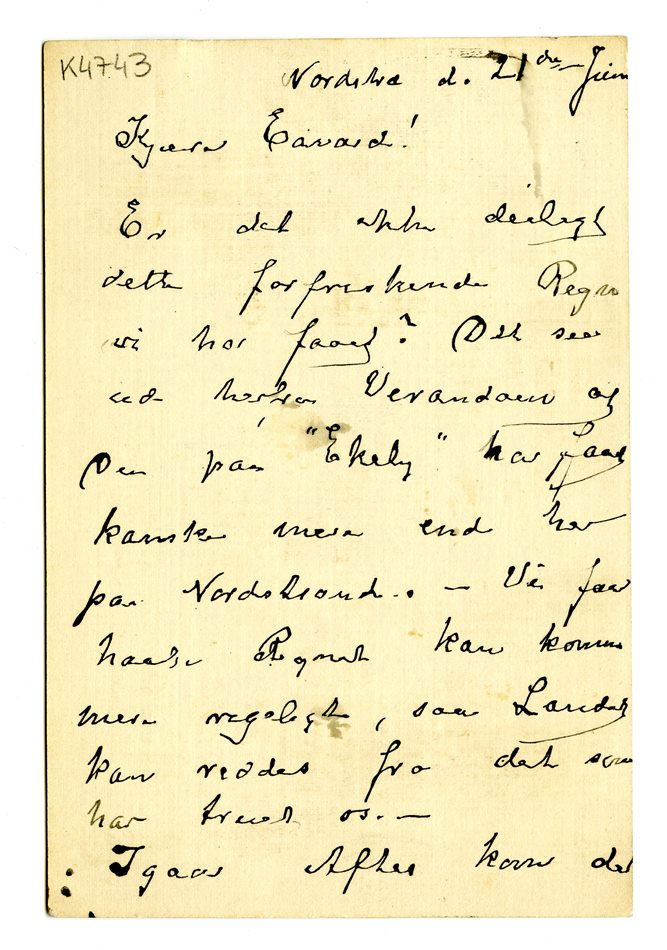 K4743
Nordstra d. 21de Juni
Kjære Edvard!
Er det ikke deiligt
dette forfriskende Regn
vi har faaet? Det see
ud herfra Verandaen og
Du paa "Ekely" har faaet
kanske mere end her
paa Nordstrand. – Vi faar
haabe Regnet kan komme
mere regelegt, saa Landet
kan reddes fra det som
har truet os. –
Igaar Aftes kom de